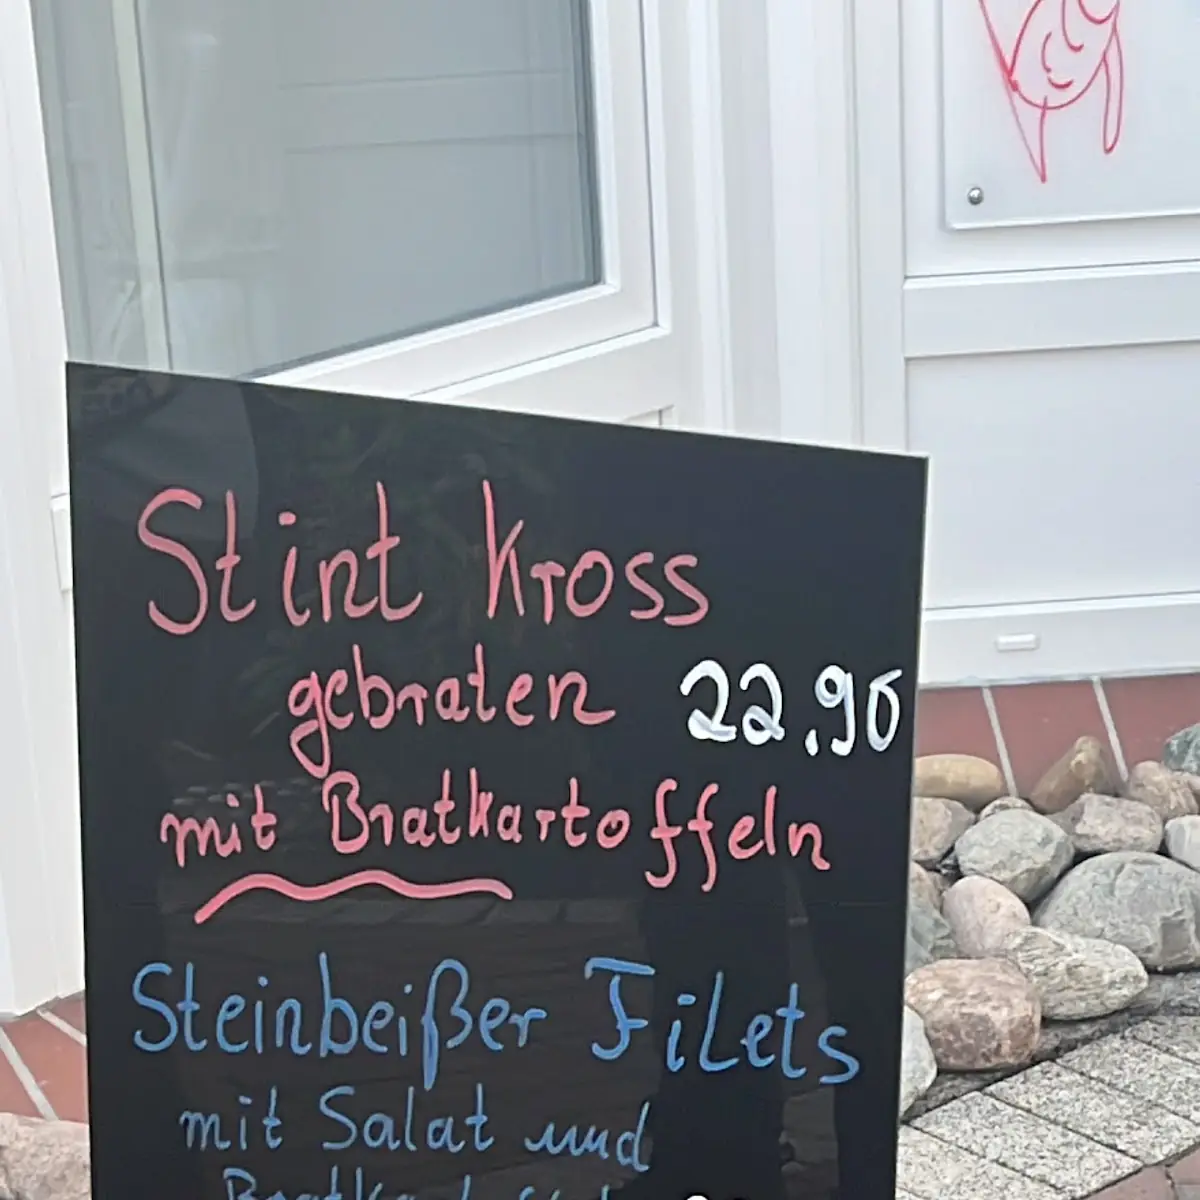 Stint Kross
gebraten 22.90
mit Bratkartoffeln
Steinbeißer Filets
mit Salat und